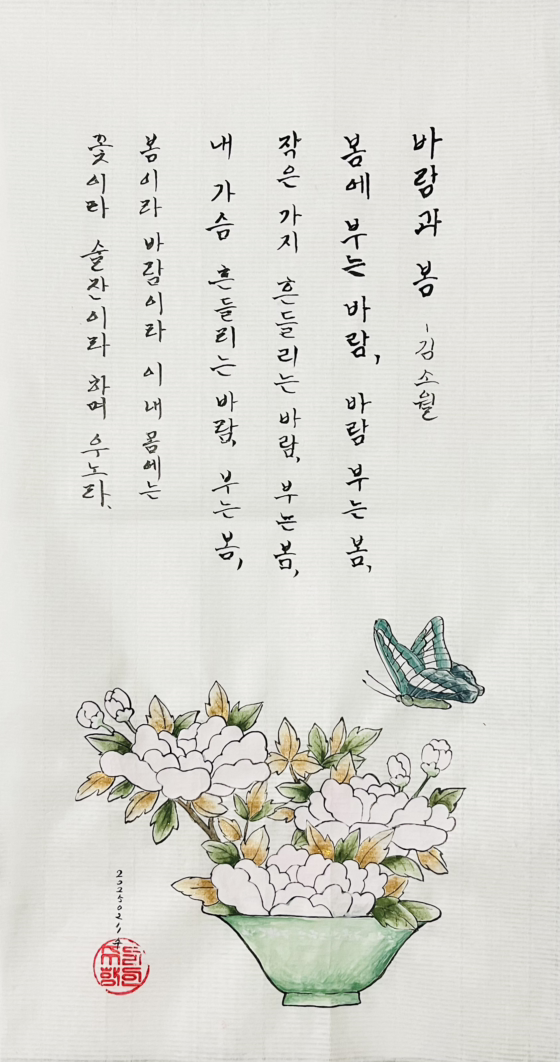 바람과 봄 -김소월
봄에 부는 바람, 바람 부는 봄,
작은 가지 흔들리는 바람, 부는 봄,
내 가슴 흔들리는 바람, 부는 봄,
봄이라 바람이라 이 내 몸에는
꽃이라 술잔이라 하며 우노라.